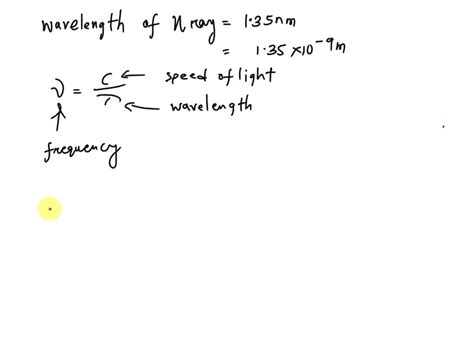 wavelength of X ray = 1.35 nm
= 1.35 × 10⁻⁹ m
ν = c/λ ← speed of light
← wavelength
↑
frequency